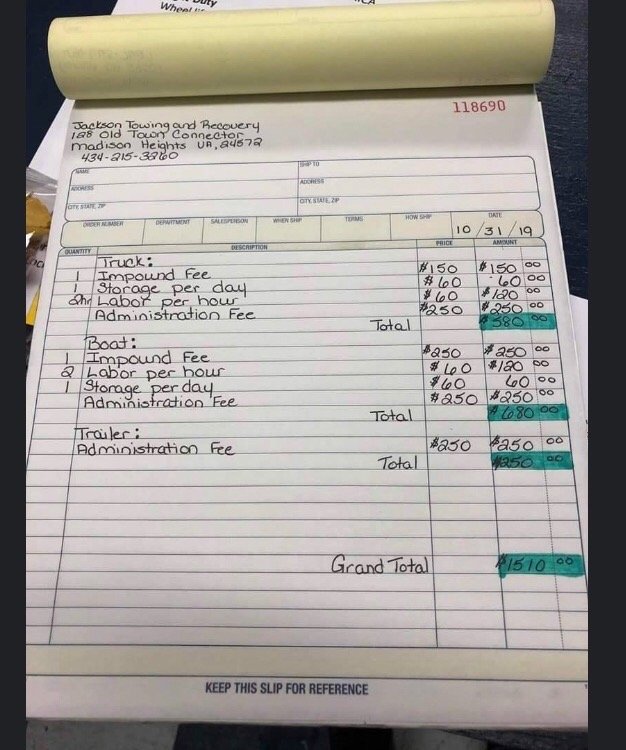 Duty
118690
Jackson Towing and Recovery
128 Old Town Connector
Madison Heights VA, 24572
434-215-3260
NAME
SHIP TO
ADDRESS
ADDRESS
CITY, STATE, ZIP
CITY, STATE, ZIP
ORDER NUMBER DEPARTMENT SALESPERSON WHEN SHIP TERMS HOW SHIP DATE
10/31/19
QUANTITY DESCRIPTION PRICE AMOUNT
Truck:
1 Impound Fee $150 $150 00
1 Storage per day $60 60 00
2hr Labor per hour $60 $120 00
Administration Fee $250 $250 00
Total $580 00
Boat:
1 Impound Fee $250 $250 00
2 Labor per hour $60 $120 00
1 Storage per day $60 60 00
Administration Fee $250 $250 00
Total $680 00
Trailer:
Administration Fee $250 $250 00
Total $250 00
Grand Total $1510 00
KEEP THIS SLIP FOR REFERENCE